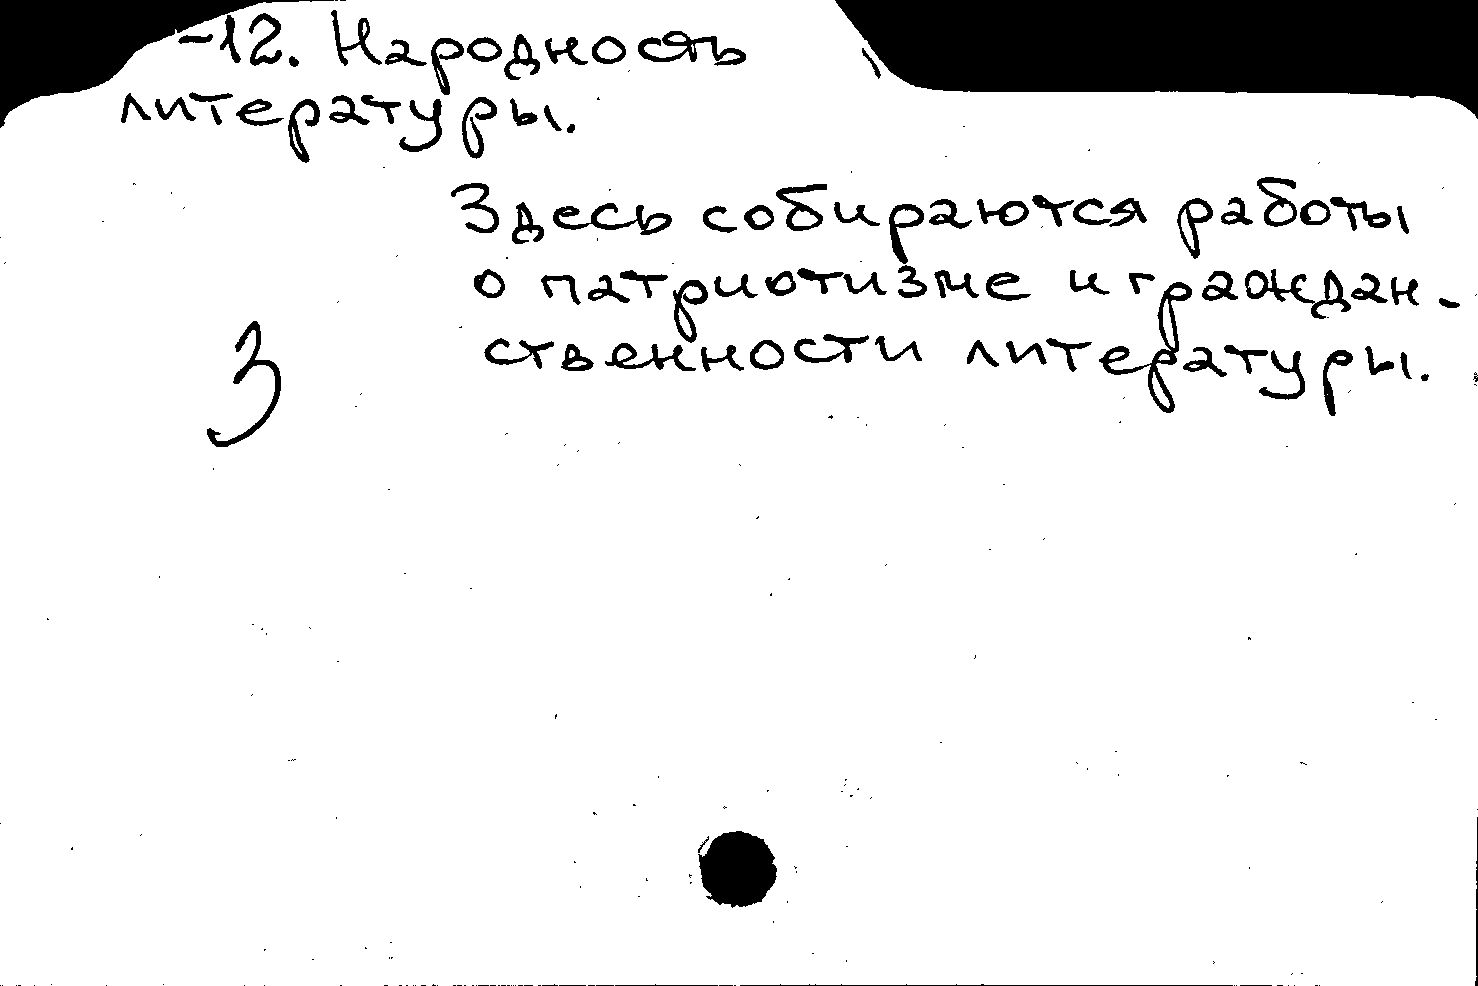 -12. Народность
литературы.
Здесь собираются работы
о патриотизме и граждан-
ственности литературы.
3